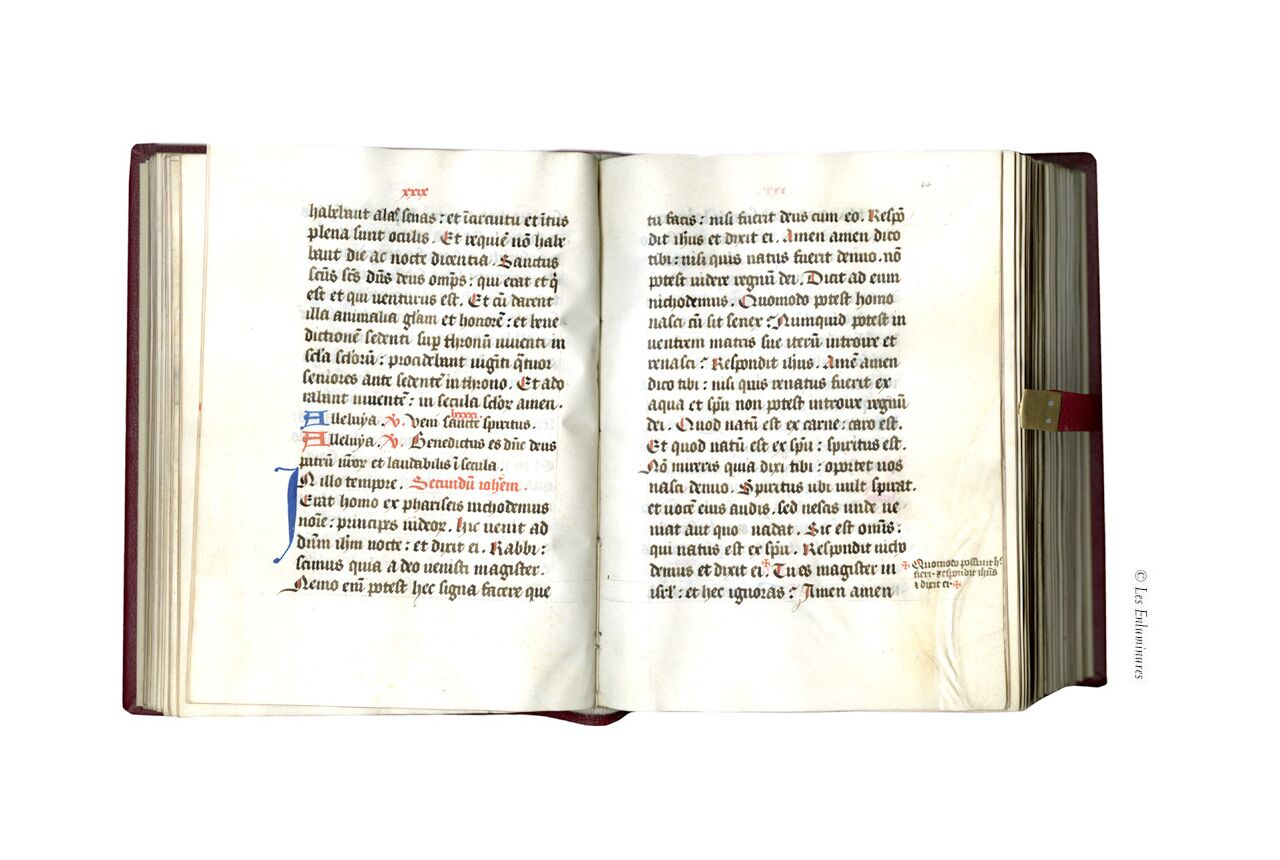 xxix
habebant alas senas : et ĩ circuitu et ĩtus
plena sunt oculis . Et requiē nō habe
bant die ac nocte dicentia . Sanctus
scūs scs dūs deus omps : qui erat et q̇
est et qui uenturus est . Et cū darent
illa animalia gl̃am et honorē : et bene
dictionē sedenti sup thronū uiuenti in
scl̃a scl̃orū : procidebant uigīti q̃tuor
seniores ante sedentē in throno . Et ado
rabant uiuentē : in secula scl̃or amen .
Alleluya . V . Veni sancte spiritus .
Alleluya . V . Benedictus es dñe deus
patrū nr̄or et laudabilis ĩ secula .
IN illo tempore . Secundū ioh̃em .
Erat homo ex phariseis nichodemus
noīe : princeps iudeor . hic uenit ad
dn̄m ihm nocte : et dixit ei . Rabbi :
scimus quia a deo uenisti magister .
Nemo enī potest hec signa facere que
xxx
tu facis : nisi fuerit deus cum eo . Respō
dit ihūs et dixit ei . Amen amen dico
tibi : nisi quis natus fuerit denuo . nō
potest uidere regnū dei . Dicit ad eum
nichodemus . Quomodo potest homo
nasci cū sit senex ? Numquid potest in
uentrem matris sue iterū introire et
renasci ? Respondit ihus . Amē amen
dico tibi : nisi quis renatus fuerit ex
aqua et spū non potest introire regnū
dei . Quod natū est ex carne : caro est .
Et quod natū est ex spū : spiritus est .
Nō mireris quia dixi tibi : oportet uos
nasci denuo . Spiritus ubi uult spirat .
et uocē eius audis . sed nescis unde ue
niat aut quo uadat . Sic est omīs :
qui natus est ex spū . Respondit nicho
demus et dixit ei . Tu es magister in
isrl̃ : et hec ignoras ? Amen amen
Quomodo possunt h̃
fieri . respondit ihūs
⁊ dixit ei .
© Les Enluminures